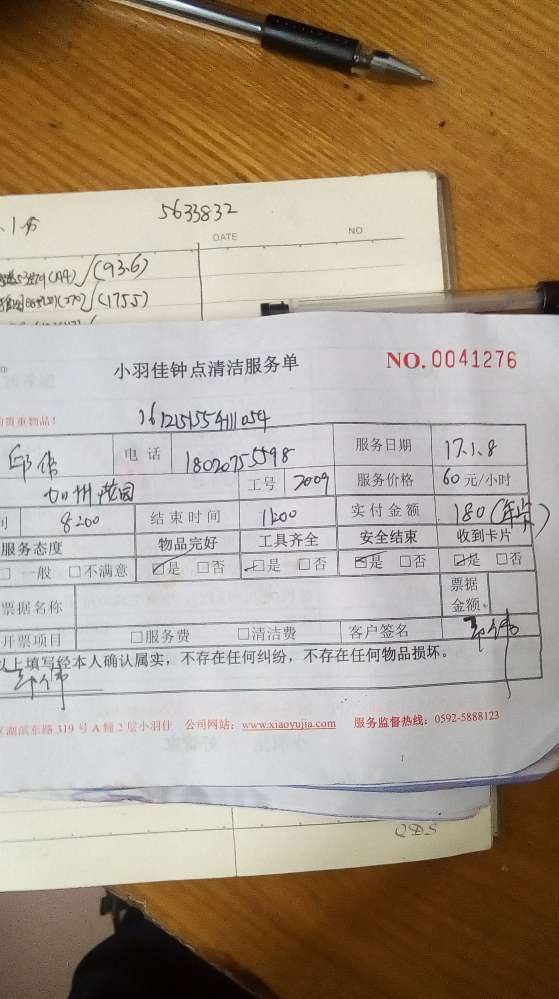 5633832
DATE NO
(93.6)
(1755)
小羽佳钟点清洁服务单 NO.0041276
贵重物品!
161215155411054
电话 18020755598 服务日期 17.1.8
加州花园 工号 2009 服务价格 60元/小时
8:00 结束时间 11:00 实付金额 180
服务态度 物品完好 工具齐全 安全结束 收到卡片
□一般 □不满意 ☑是 □否 ☑是 □否 ☑是 □否 ☑是 □否
票据名称 票据金额
开票项目 □服务费 □清洁费 客户签名
以上填写经本人确认属实，不存在任何纠纷，不存在任何物品损坏。
湖滨东路319号A幢2层小羽佳 公司网站：www.xiaoyujia.com 服务监督热线：0592-5888123
1